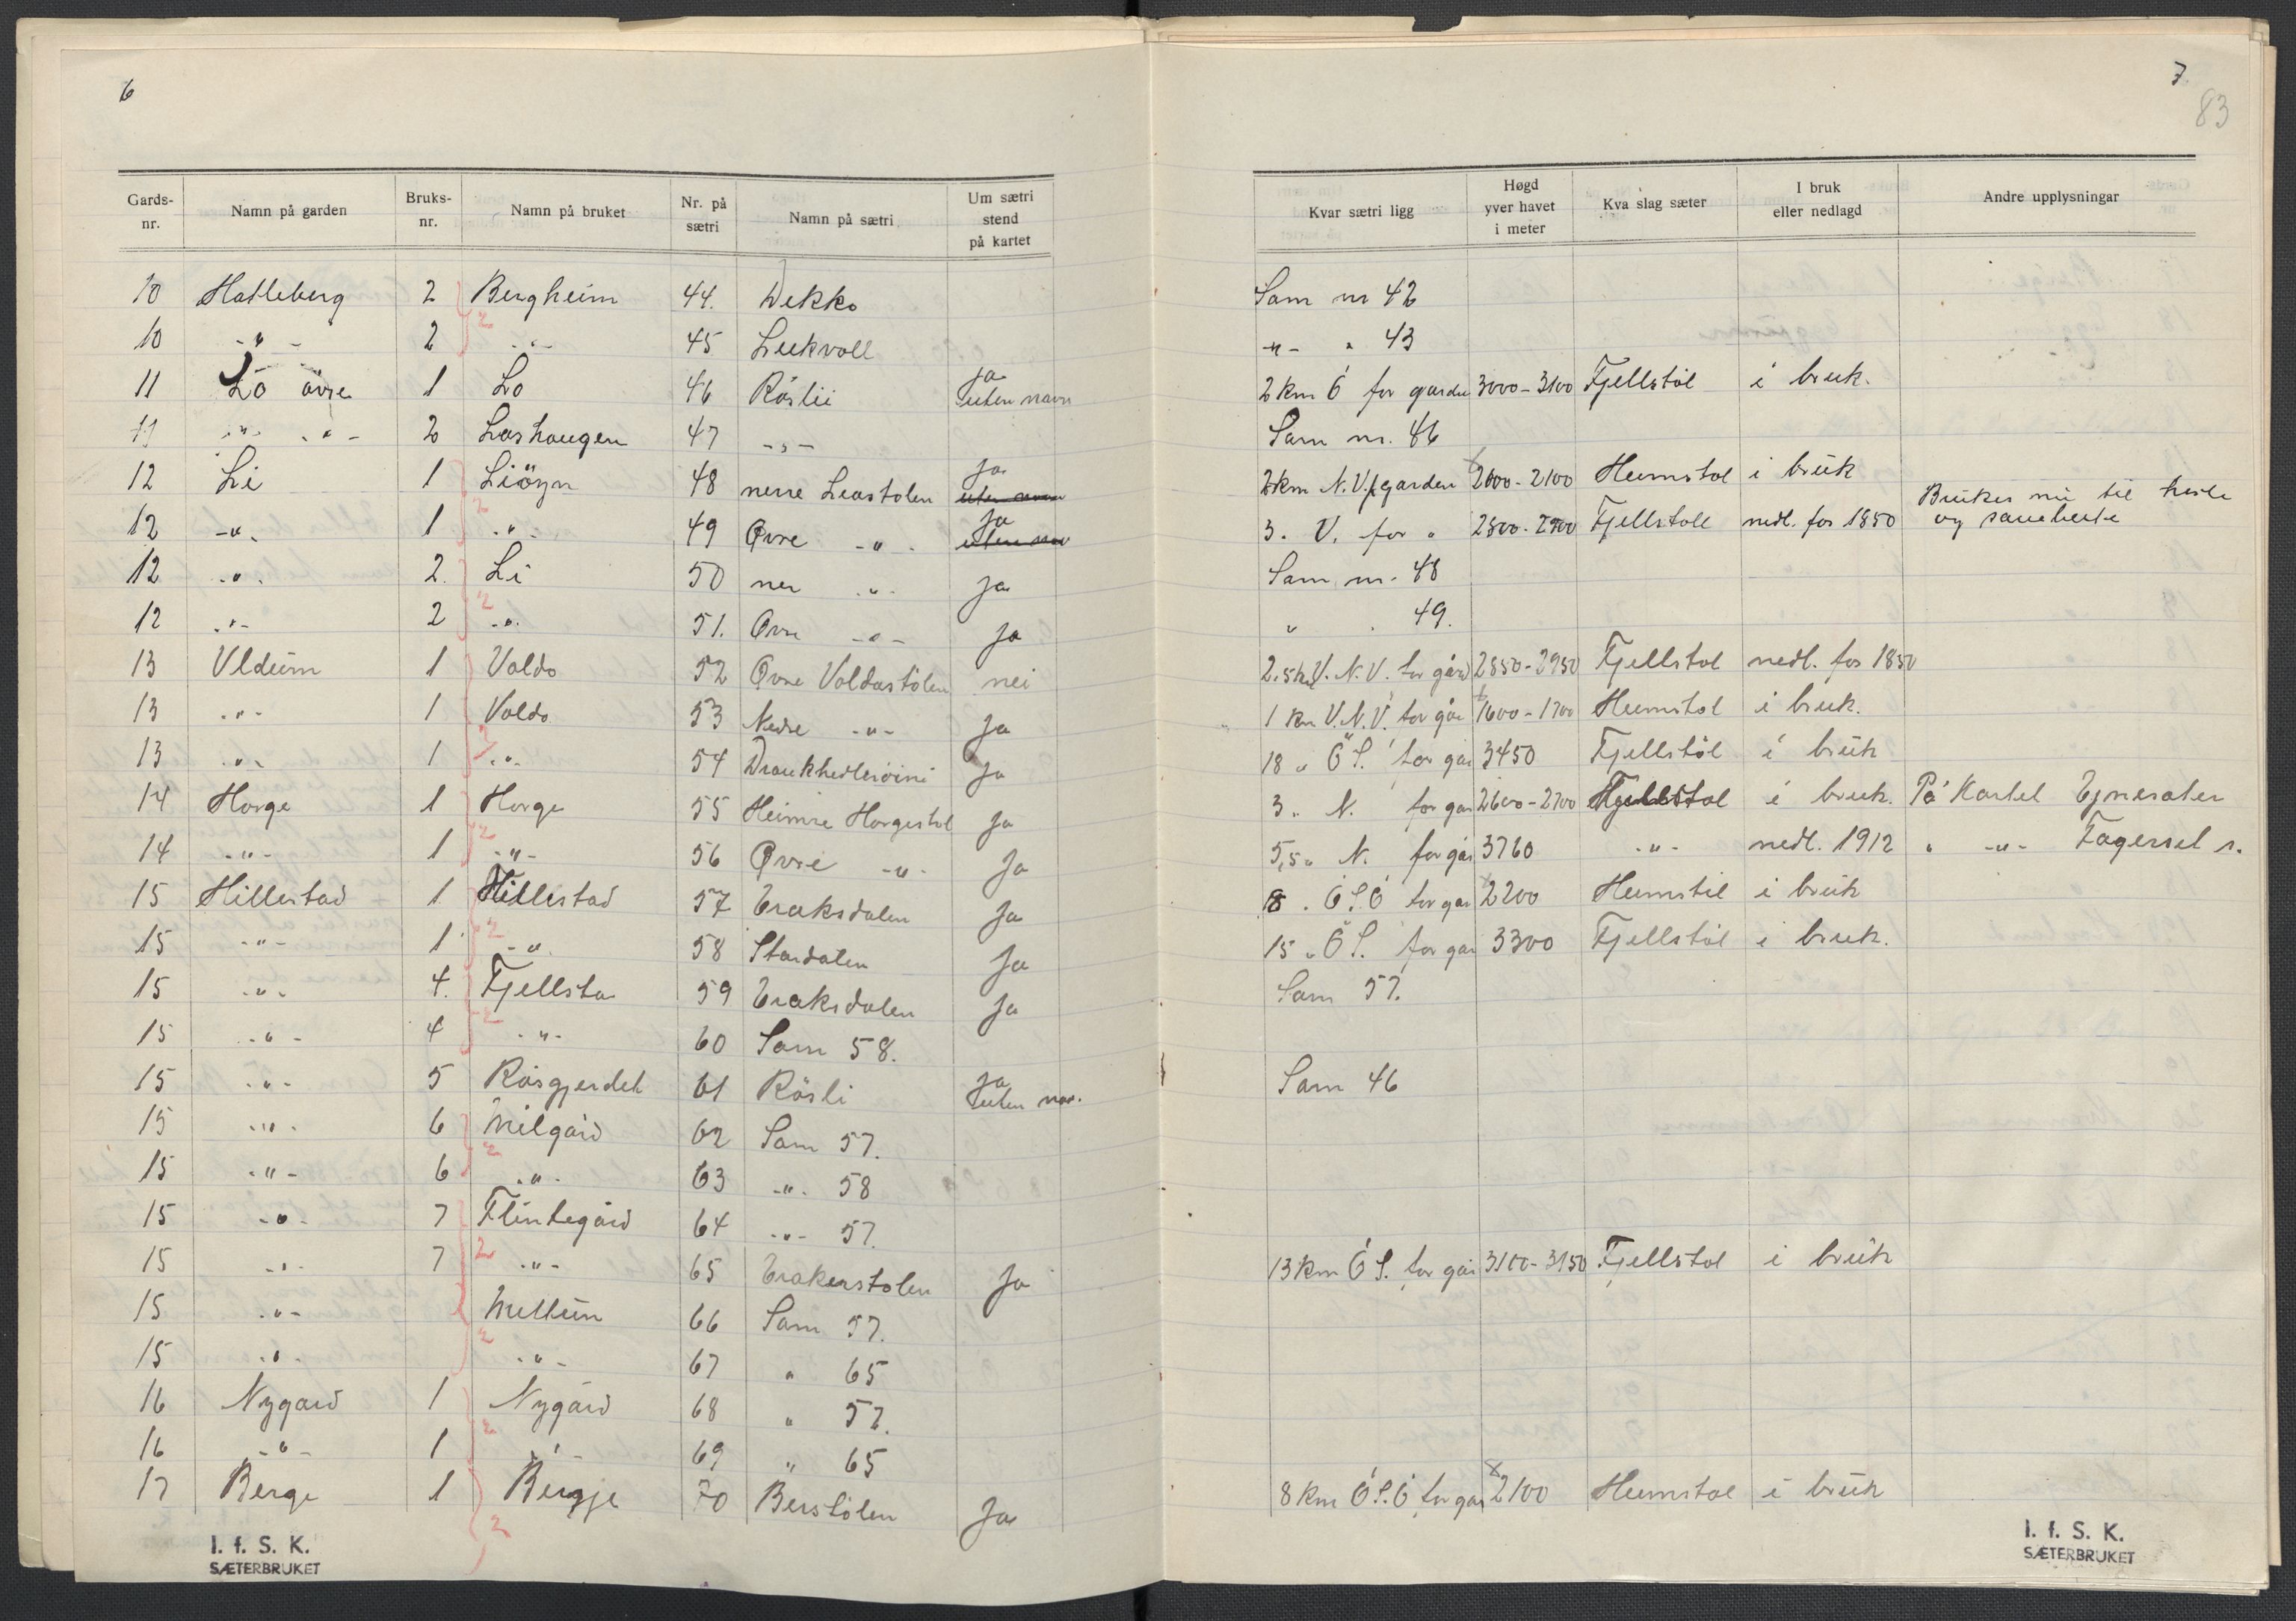 6
Gards-nr. Namn på garden Bruks-nr. Namn på bruket Nr. på sætri Namn på sætri Um sætri stend på kartet
10 Hatleberg 2 Bergheim 44. Dekko
10 -"- 2 -"- 45 Leekvoll
11 Lo övre 1 Lo 46 Röslii ja uten navn
11 -"- -"- 2 Loshaugen 47 -"-
12 Li 1 Liöyn 48 nerre Leastolen ja
12 -"- 1 -"- 49 Øvre -"- ja
12 -"- 2. Li 50 ner -"- ja
12 -"- 2 -"- 51. Øvre -"- ja
13 Uldum 1 Voldo 52 Øvre Voldastölen nei
13 -"- 1 Voldo 53 Nedre -"- ja
13 -"- 1 -"- 54 ja
14 Horge 1 Horge 55 Heimre Horgestol ja
14 -"- 1 -"- 56 Øvre -"- ja
15 Hillestad 1 Hillestad 57 Eraksdalen ja
15 -"- 1 -"- 58 Stardalen ja
15 -"- 4. Fjellsta 59 Eraksdalen ja
15 -"- 4 -"- 60 Sam 58.
15 -"- 5 Råsgjerdet 61 Rösli ja uten nav.
15 -"- 6 Milgård 62 Sam 57.
15 -"- 6 -"- 63 -"- 58
15 -"- 7 Flintegård 64 -"- 57.
15 -"- 7 -"- 65 Erakerstolen ja
15 -"- Mellum 66 Sam 57.
15 -"- -"- 67 " 65
16 Nygard 1 Nygård 68 " 57.
16 -"- 1 -"- 69 " 65
17 Berge 1 Bergje 70 Berstölen ja
I. f. S. K.
SÆTERBRUKET
7
83
Kvar sætri ligg Høgd yver havet i meter Kva slag sæter I bruk eller nedlagd Andre upplysningar
Sam nr 42
-"- " 43
2 km Ö for garden 3000-3100 Fjellstöl i bruk.
Sam nr. 46
2 km N.V. f garden 2000-2100 Heimstol i bruk
3. V. for " 2800-2900 Fjellstoll nedl. for 1850 Brukes nu til heste og sauebeite
Sam nr. 48
" . 49.
2.5 km V.N.V. for gård 2850-2950 Fjellstol nedl. for 1850
1 km V.N.V. for går 1600-1700 Heimstol i bruk.
18 " Ö S. for går 3450 Fjellstöl i bruk
3. N. for gar 2600-2700 Fjellstol i bruk. På Kartet
5,5 " N. for går 3760 -"- nedl. 1912 " -"- Fagersel s.
8 . Ö S Ö for gar 2200 Heimstöl i bruk
15 " Ö S. for gar 3300 Fjellstöl i bruk.
Sam 57.
Sam 46
13 km Ö S. for går 3100-3150 Fjellstol i bruk
8 km Ö S. Ö for gar 2100 Heimstol i bruk
I. f. S. K.
SÆTERBRUKET